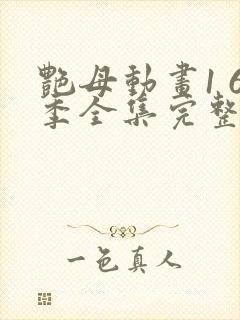 艷母動畫1 6
季全集完整
一色真人